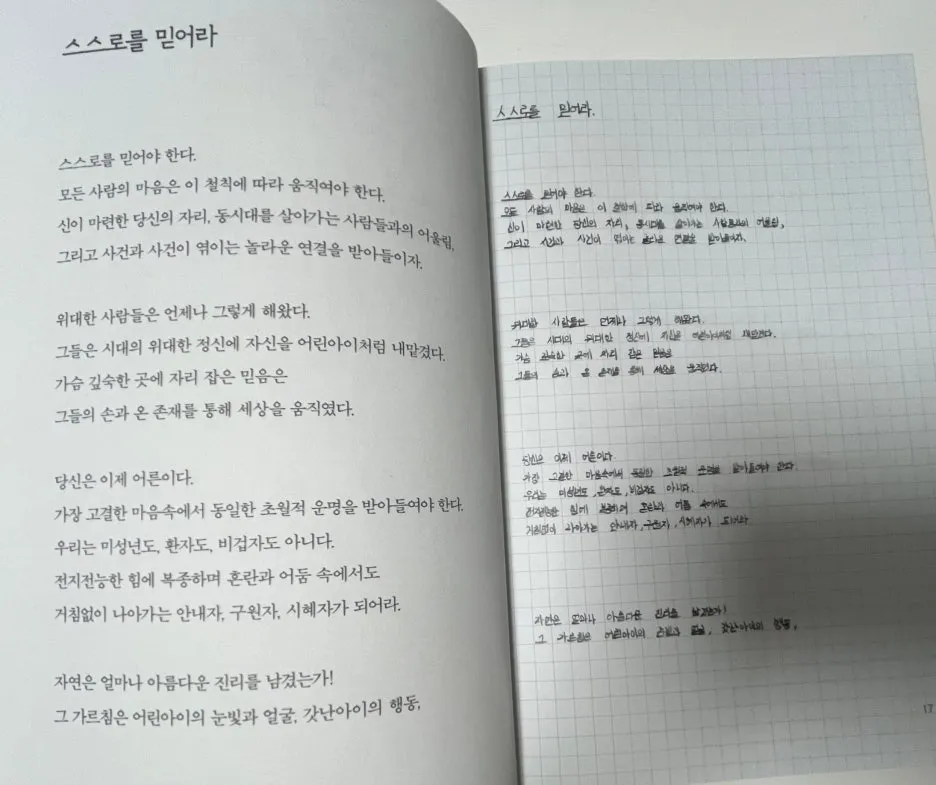 스스로를 믿어라
스스로를 믿어야 한다.
모든 사람의 마음은 이 철칙에 따라 움직여야 한다.
신이 마련한 당신의 자리, 동시대를 살아가는 사람들과의 어울림,
그리고 사건과 사건이 엮이는 놀라운 연결을 받아들이자.
위대한 사람들은 언제나 그렇게 해왔다.
그들은 시대의 위대한 정신에 자신을 어린아이처럼 내맡겼다.
가슴 깊숙한 곳에 자리 잡은 믿음은
그들의 손과 온 존재를 통해 세상을 움직였다.
당신은 이제 어른이다.
가장 고결한 마음속에서 동일한 초월적 운명을 받아들여야 한다.
우리는 미성년도, 환자도, 비겁자도 아니다.
전지전능한 힘에 복종하며 혼란과 어둠 속에서도
거침없이 나아가는 안내자, 구원자, 시혜자가 되어라.
자연은 얼마나 아름다운 진리를 남겼는가!
그 가르침은 어린아이의 눈빛과 얼굴, 갓난아이의 행동,
스스로를 믿어라.
스스로를 믿어야 한다.
모든 사람의 마음은 이 철칙에 따라 움직여야 한다.
신이 마련한 당신의 자리, 동시대를 살아가는 사람들과의 어울림,
그리고 사건과 사건이 엮이는 놀라운 연결을 받아들이자.
위대한 사람들은 언제나 그렇게 해왔다.
그들은 시대의 위대한 정신에 자신을 어린아이처럼 내맡겼다.
가슴 깊숙한 곳에 자리 잡은 믿음은
그들의 손과 온 존재를 통해 세상을 움직였다.
당신은 이제 어른이다.
가장 고결한 마음속에서 동일한 초월적 운명을 받아들여야 한다.
우리는 미성년도, 환자도, 비겁자도 아니다.
전지전능한 힘에 복종하며 혼란과 어둠 속에서도
거침없이 나아가는 안내자, 구원자, 시혜자가 되어라
자연은 얼마나 아름다운 진리를 남겼는가!
그 가르침은 어린아이의 눈빛과 얼굴, 갓난아이의 행동,
17